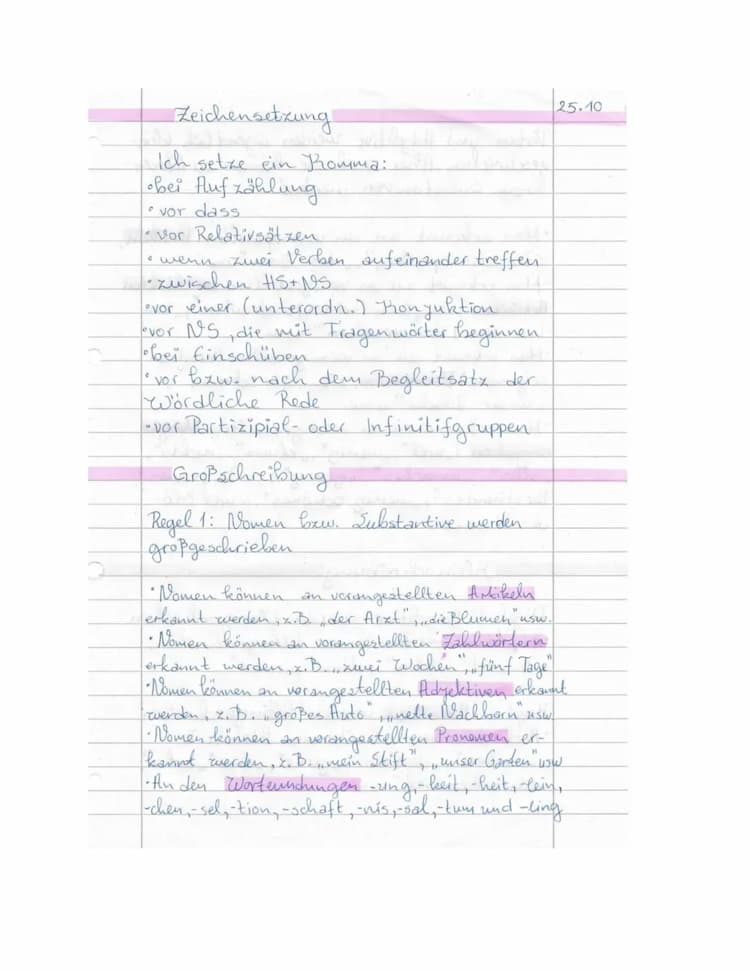 25.10
Zeichensetzung
Ich setze ein Komma:
• bei Aufzählung
• vor dass
• vor Relativsätzen
• wenn zwei Verben aufeinander treffen
• zwischen HS+NS
• vor einer (unterordn.) Konjuktion
• vor NS, die mit Fragenwörter beginnen
• bei Einschüben
• vor bzw. nach dem Begleitsatz der
Wördliche Rede
• vor Partizipial- oder Infinitifgruppen
Großschreibung
Regel 1: Nomen bzw. Substantive werden
großgeschrieben
• Nomen können an vorangestellten Artikeln
erkannt werden, z.B. „der Arzt", „die Blumen" usw.
• Nomen können an vorangestellten Zahlwörtern
erkannt werden, z.B. „zwei Wochen", „fünf Tage"
• Nomen können an vorangestellten Adjektiven erkannt
werden, z.B. „großes Auto", „nette Nachbarn" usw.
• Nomen können an vorangestellten Pronomen er-
kannt werden, z.B. „mein Stift", „unser Garten" usw
• An den Wortenndungen -ung, -keit, -heit, -lein,
-chen, -sel, -tion, -schaft, -nis, -sal, -tum und -ling